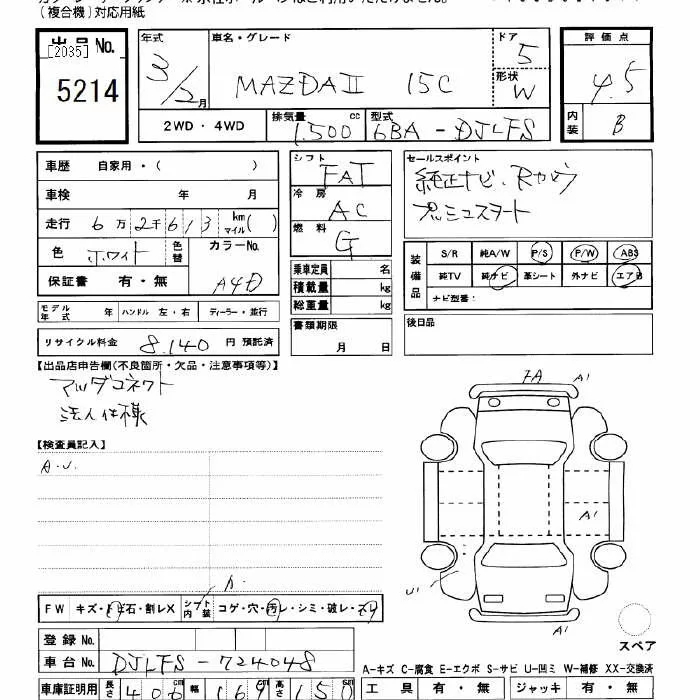 (複合機)対応用紙
出品 No. [2035] 5214
年式 3/2月
車名・グレード MAZDAⅡ 15C
ドア 5
形状 W
評価点 4.5
内装 B
2WD・4WD
排気量 1.500 cc
型式 6BA-DJLFS
車歴 自家用・( )
車検 年 月
走行 6万2千613 km マイル( )
色 ホワイト 色替
カラーNo. A4D
保証書 有・無
モデル年式 年 ハンドル 左・右 ディーラー・並行
リサイクル料金 8.140 円 預託済
シフト FAT
冷房 AC
燃料 G
乗車定員 名
積載量 kg
総重量 kg
書類期限
月 日
セールスポイント
純正ナビ、Rカメラ
プッシュスタート
装備品
S/R 純A/W P/S P/W ABS
純TV 純ナビ 革シート 外ナビ エアB
ナビ型番:
後日品
【出品店申告欄(不良箇所・欠品・注意事項等)】
マツダコネクト
法人仕様
【検査員記入】
A.U.
FW キズ・トビ石・割レX シフト 内装 コゲ・穴・汚レ・シミ・破レ・スリ
A.
登録 No.
車台 No. DJLFS-724048
車庫証明用 長さ 406 cm 幅 169 cm 高さ 150
FA A1
A1
U1
A1
スペア
A-キズ C-腐食 E-エクボ S-サビ U-凹ミ W-補修 XX-交換済
工具 有・無 ジャッキ 有・無